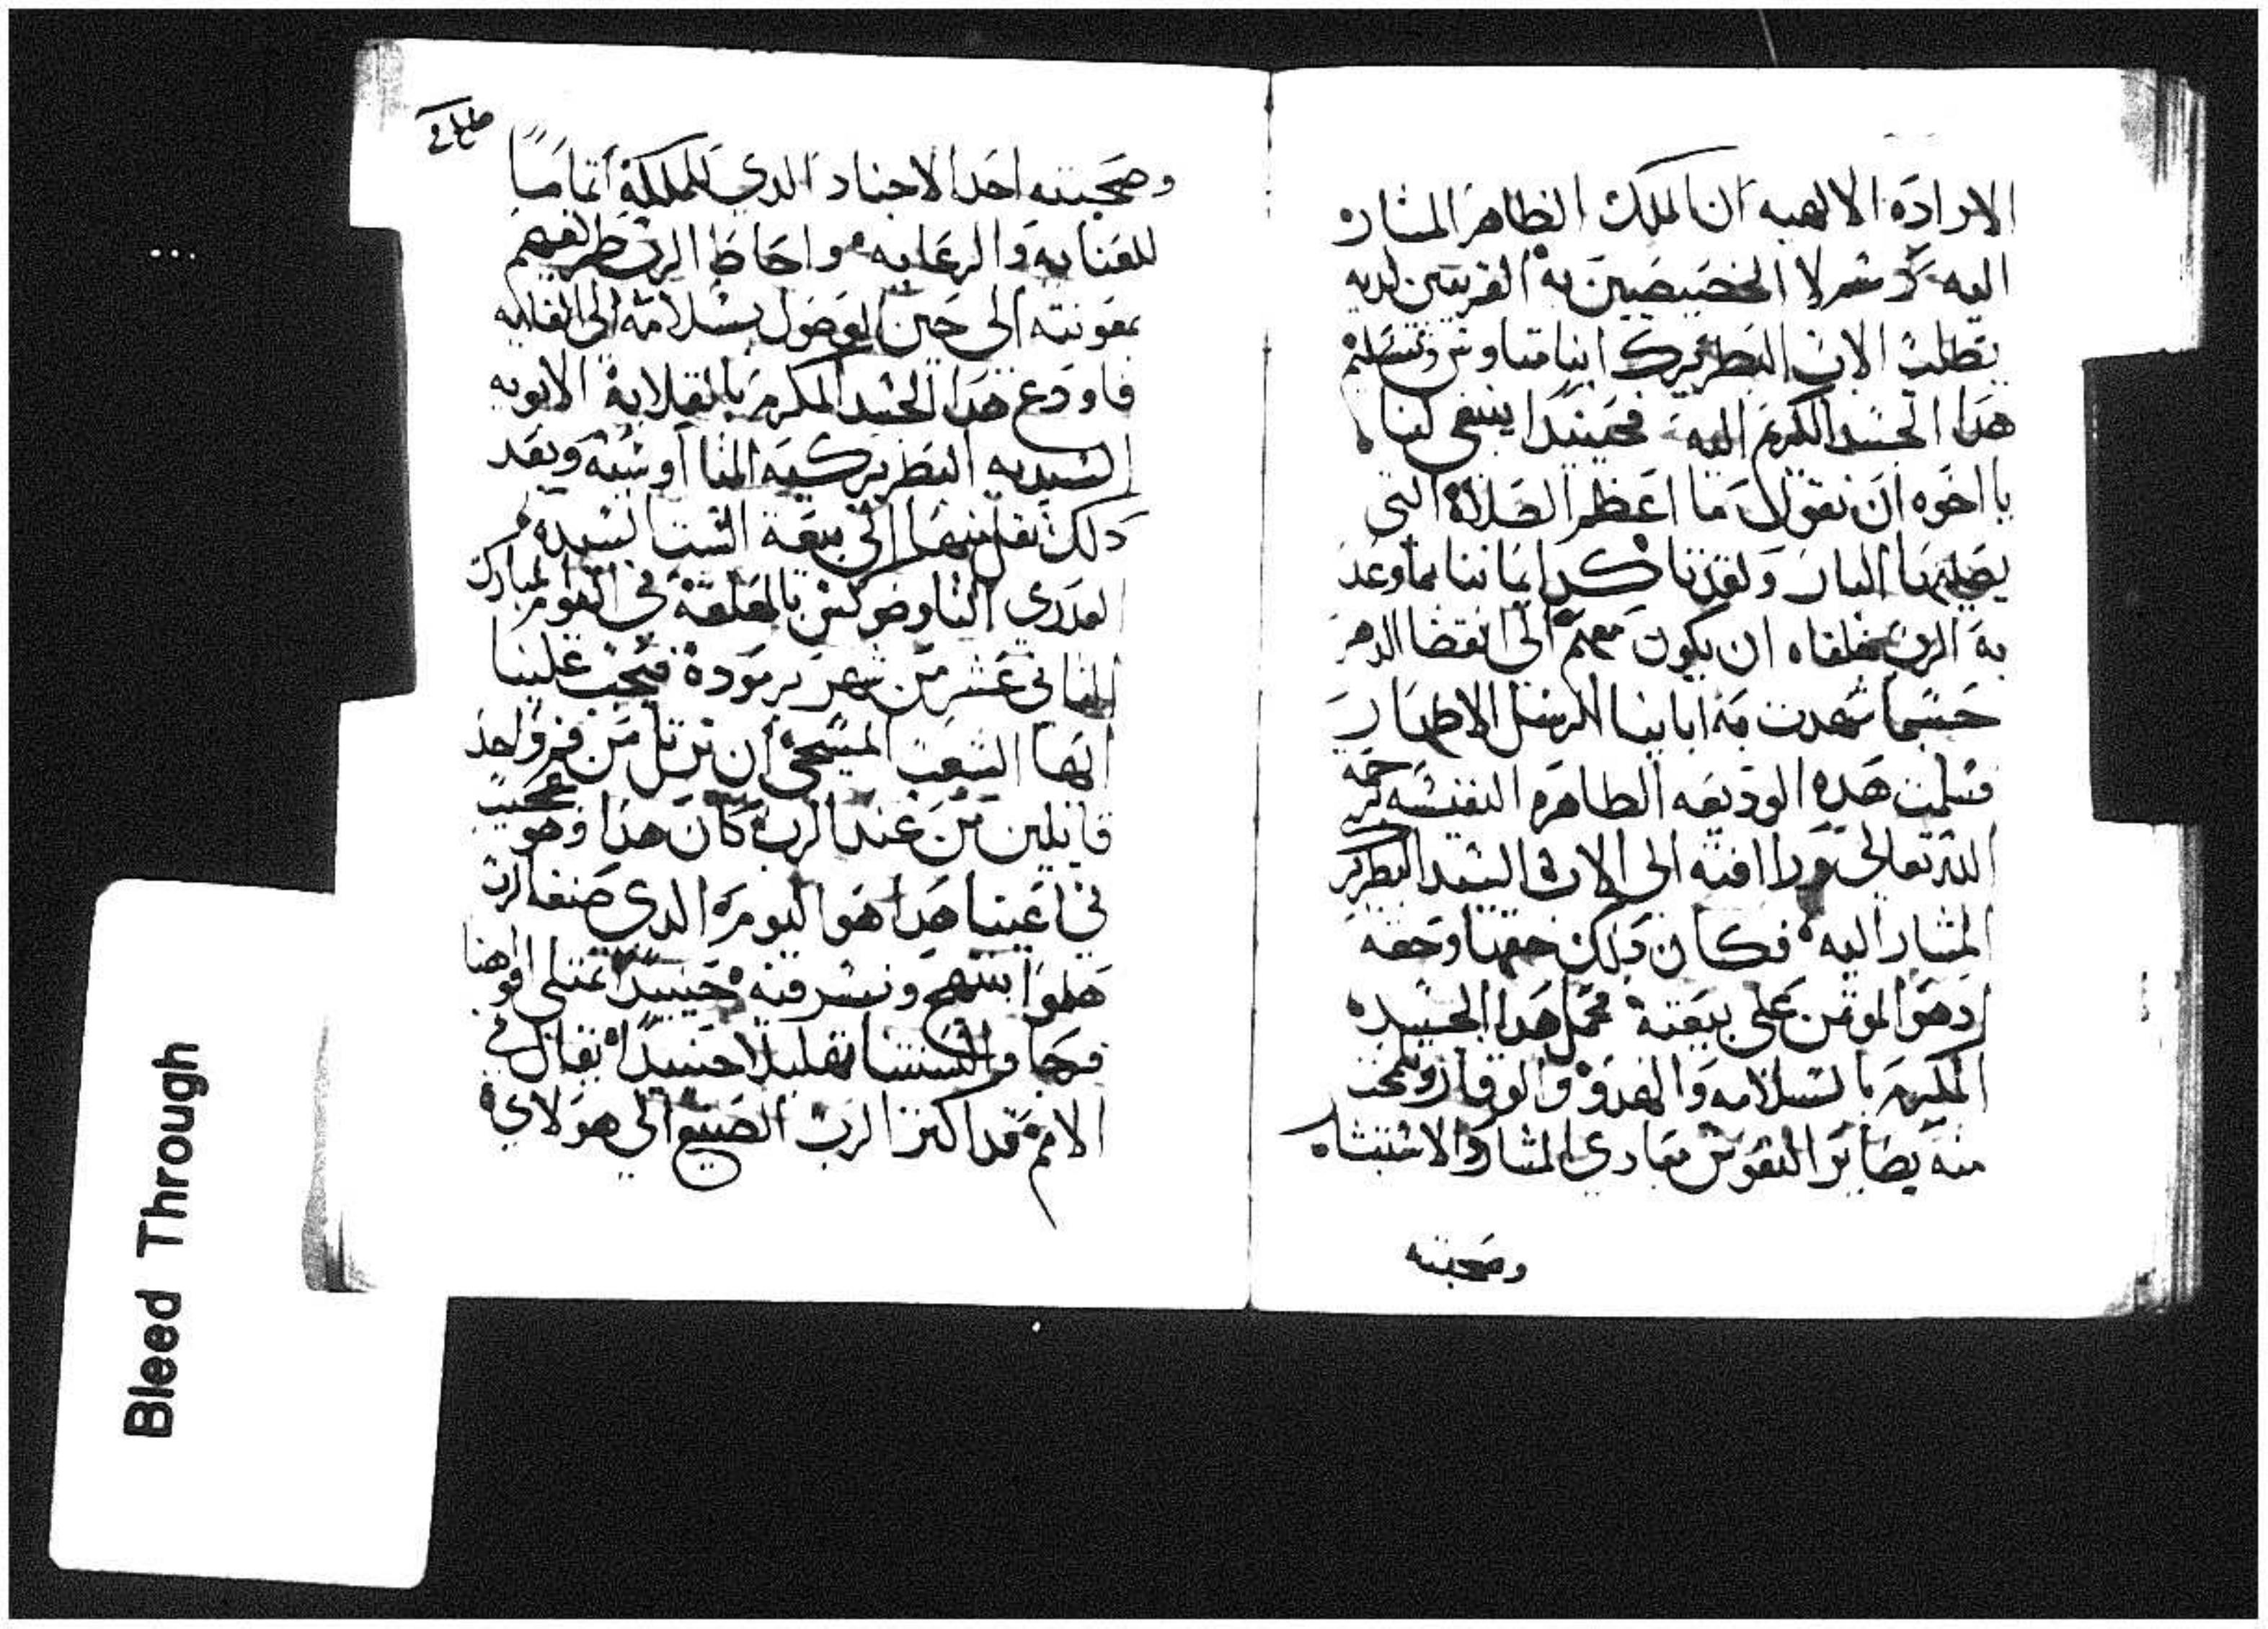 الارادة الالهيه ان الملك الظاهر المشار
اليه ارسل الخصيصين به القريبين لديه
بطلب الاب البطريرك انبا متاوس وتسلم
هدا الجسد الكريم اليه فحينيدا ينبغي لنا
يا اخوه ان نقول ما اعظم الصلاة التي
يصليها البار ولقد تاكد ايماننا بما وعد
به الرب خلفاه ان يكون معهم الى انقضا الدهر
حسبما شهدت به اباينا الرسل الاطهار
فسلمت هده الوديعه الطاهره النفيسه برحمة
الله تعالى ورافته الى الاب السيد البطريرك
المشار اليه فكان دلك حقها وحقه
اد هو الموتمن على بيعته فحمل هدا الجسد
المكرم بالسلامه والهدو والوقار وصحبته
منه بصاير النفوس تنادي المشار والاستبشار
وصحبته
وصحبته احد الاجناد الدي للمملكة اتماما
للعنايه والرعايه واحاط الرب طريقهم
بمعونته الى حين الوصول بسلامة الى الغايه
فاودع هدا الجسد المكرم بالقلاية الابويه
السيديه البطريركيه المتاأوسيه وبعد
دلك نقل منها الى بيعة الست السيده
العدرى التاوضوكس بالمعلقة في اليوم المبارك
الثاني عشر من شهر برمودة فيجب علينا
ايها الشعب المسيحي ان نرتل من فم واحد
قايلين من عند الرب كان هدا وهو عجيب
في اعيننا هدا هو اليوم الدي صنعه الرب
هلموا نبتهج ونسر فيه حينيدا تمتلى افواهنا
فرحا والسنتنا تهليلا حينيدا يقال في
الامم قد اكثر الرب الصنيع الى هولاي